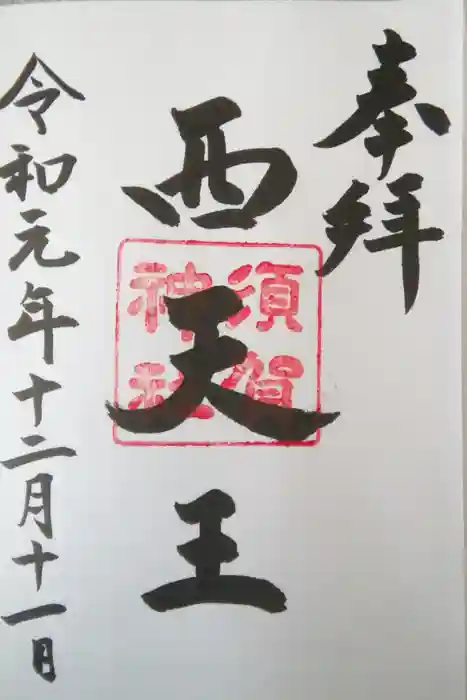 奉拝
西天王
須賀
神社
令和元年十二月十一日